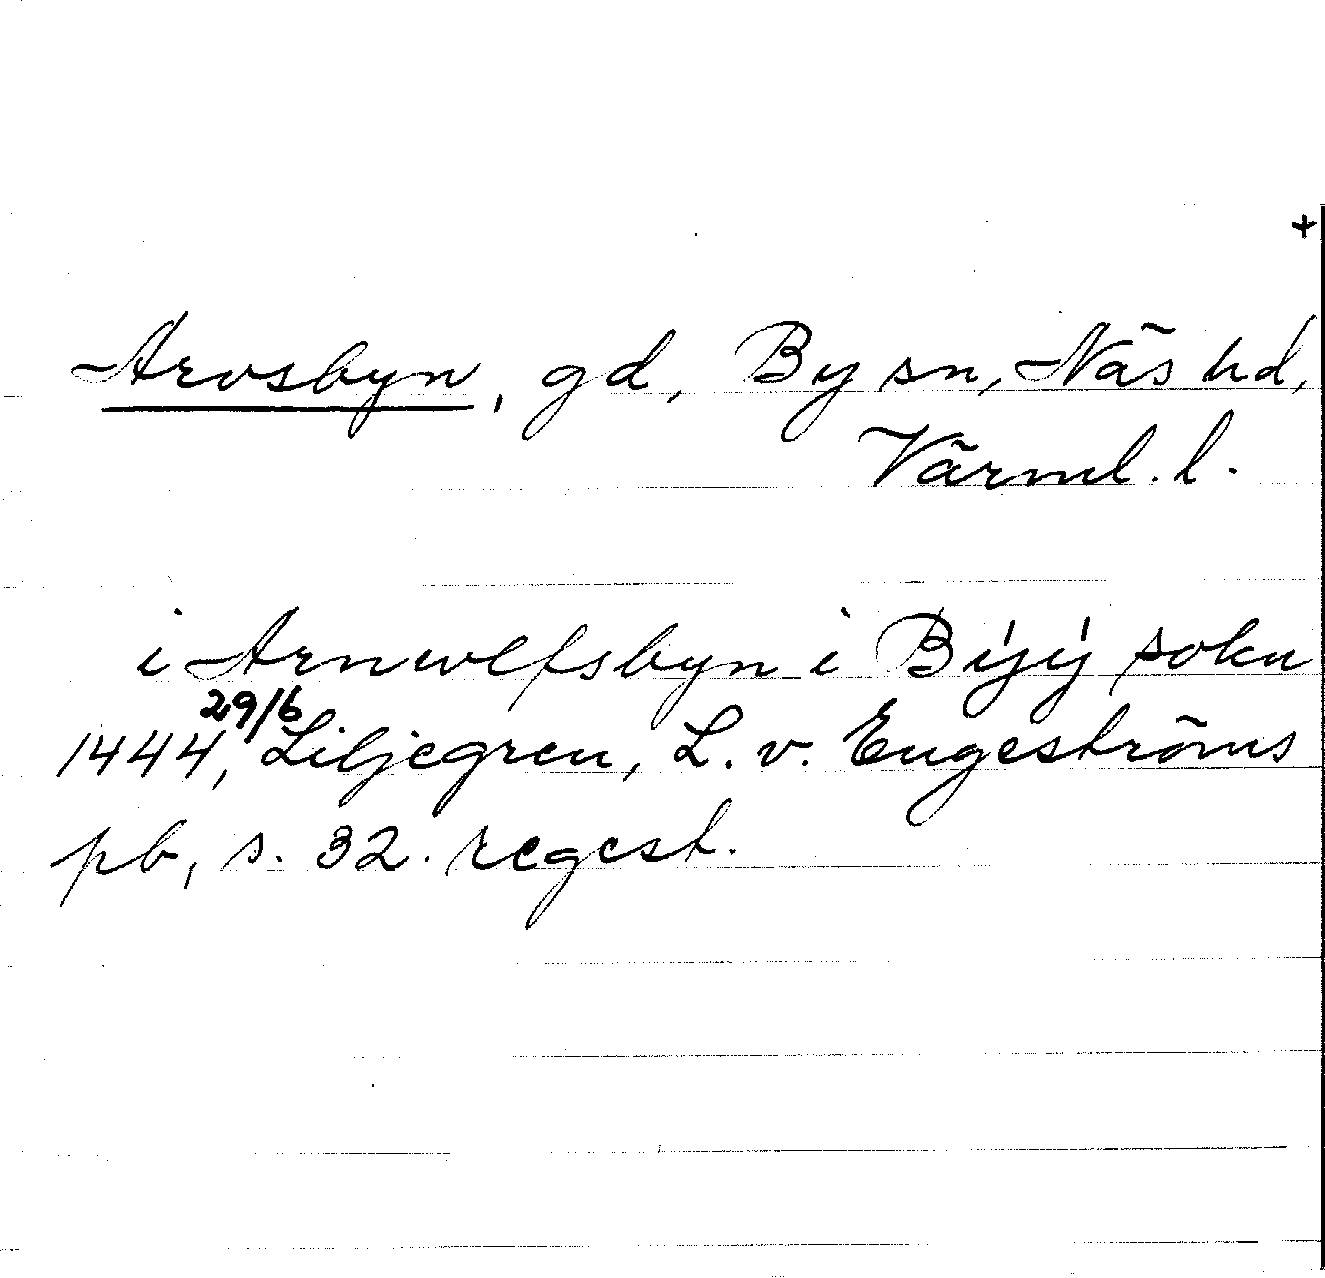 +
Arvsbyn, gd, By sn, Näs hd,
Värml. l.
i Arnwlfsbyn i Býý sokn
1444 29/6, Liljegren, L. v. Engeströms
pb, s. 32. regest.